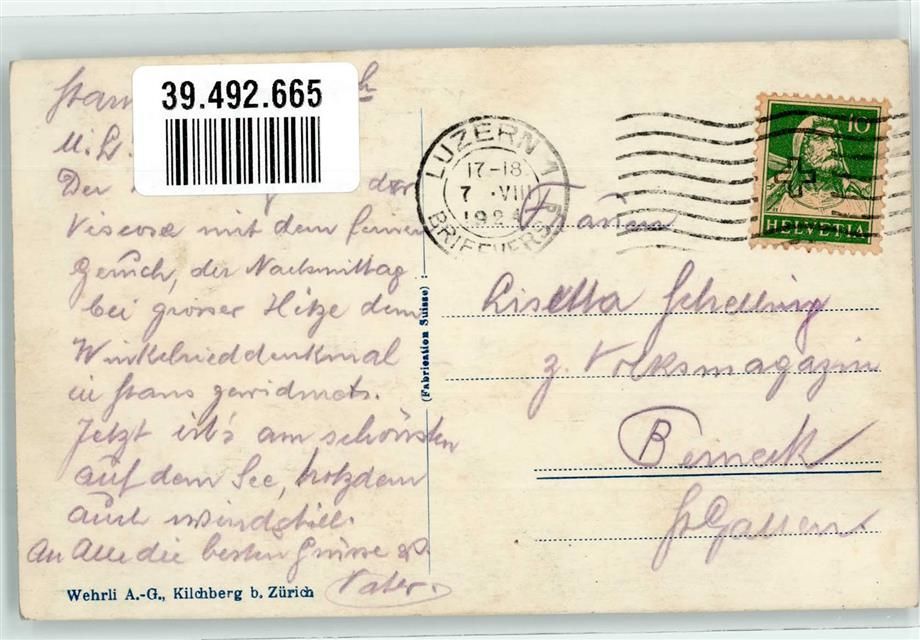 39.492.665
Stans
M. L.
Der
Viscose mit dem feinen
Geruch, der Nachmittag
bei grosser Hitze dem
Winkelrieddenkmal
in Stans gewidmet.
Jetzt ist's am schönsten
auf dem See, trotzdem
auch windstill.
An Alle die besten Grüsse
Vater.
Wehrli A.-G., Kilchberg b. Zürich
(Fabrication Suisse)
LUZERN 1
17-18
7 .VIII
192
BRIEFVERS
10
HELVETIA
Frauen
Lisetta Schelling
z. Volksmagazin
Berneck
St Gallen